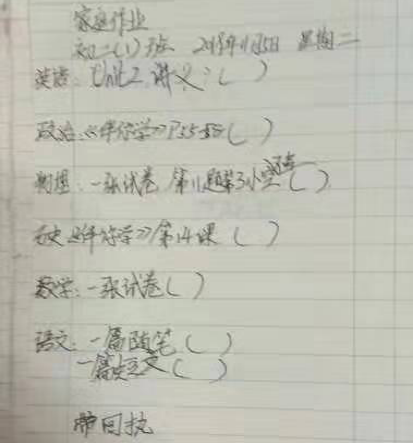 家庭作业
初二(1)班 2018年11月5日 星期二
英语: Unit2 讲义:( )
政治:《伴你学》P55-58( )
物理: 一张试卷 第11题第3小空 ( )
历史《伴你学》第14课 ( )
数学: 一张试卷( )
语文: 一篇随笔 ( )
一篇短文 ( )
带回执